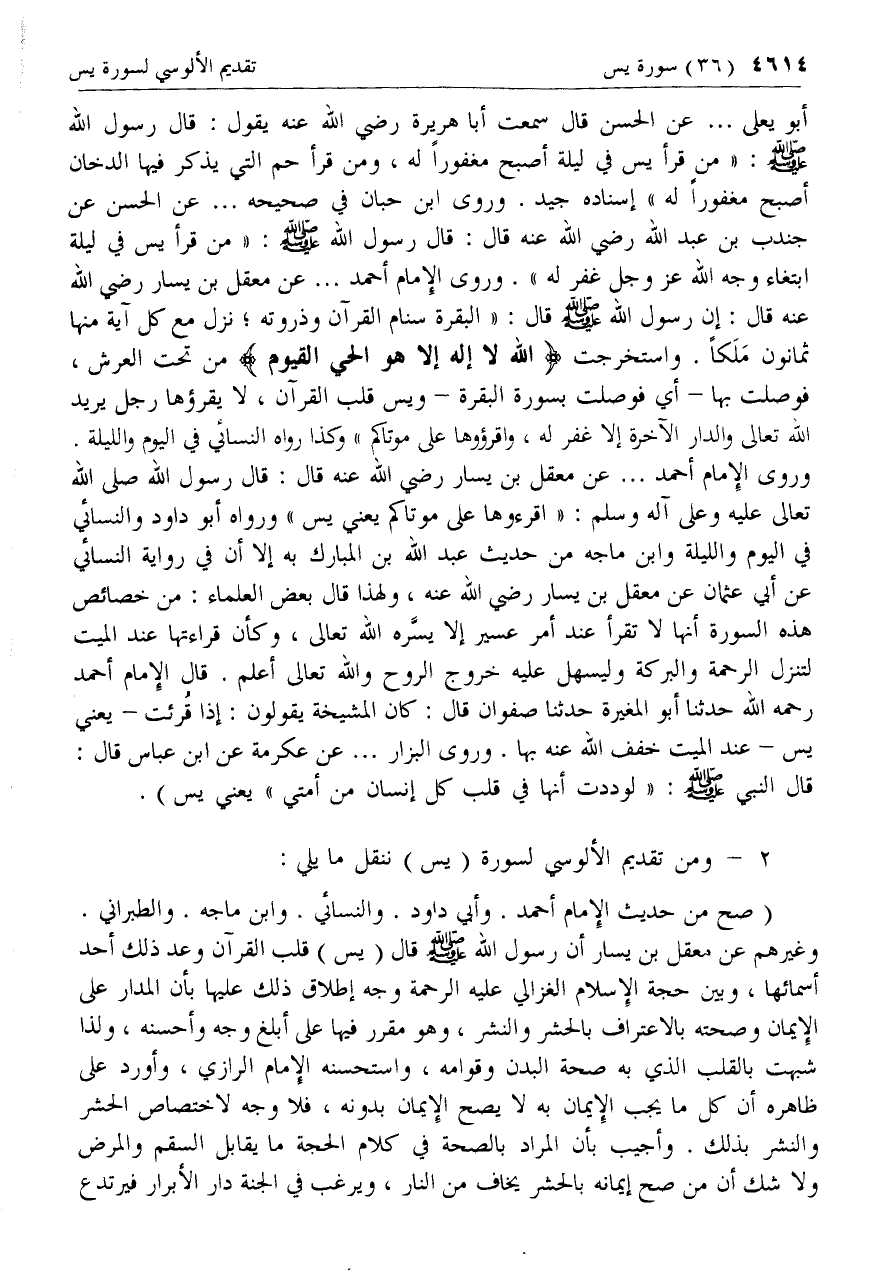 ٤٦١٤ (٣٦) سورة يس تقديم الألوسي لسورة يس
أبو يعلى ... عن الحسن قال سمعت أبا هريرة رضي الله عنه يقول : قال رسول الله
ﷺ : « من قرأ يس في ليلة أصبح مغفوراً له ، ومن قرأ حم التي يذكر فيها الدخان
أصبح مغفوراً له » إسناده جيد . وروى ابن حبان في صحيحه ... عن الحسن عن
جندب بن عبد الله رضي الله عنه قال : قال رسول الله ﷺ : « من قرأ يس في ليلة
ابتغاء وجه الله عز وجل غفر له » . وروى الإمام أحمد ... عن معقل بن يسار رضي الله
عنه قال : إن رسول الله ﷺ قال : « البقرة سنام القرآن وذروته ؛ نزل مع كل آية منها
ثمانون مَلَكاً . واستخرجت ﴿ الله لا إله إلا هو الحي القيوم ﴾ من تحت العرش ،
فوصلت بها – أي فوصلت بسورة البقرة – ويس قلب القرآن ، لا يقرؤها رجل يريد
الله تعالى والدار الآخرة إلا غفر له ، واقرؤوها على موتاكم » وكذا رواه النسائي في اليوم والليلة .
وروى الإمام أحمد ... عن معقل بن يسار رضي الله عنه قال : قال رسول الله صلى الله
تعالى عليه وعلى آله وسلم : « اقرءوها على موتاكم يعني يس » ورواه أبو داود والنسائي
في اليوم والليلة وابن ماجه من حديث عبد الله بن المبارك به إلا أن في رواية النسائي
عن أبي عثمان عن معقل بن يسار رضي الله عنه ، ولهذا قال بعض العلماء : من خصائص
هذه السورة أنها لا تقرأ عند أمر عسير إلا يسَّره الله تعالى ، وكأن قراءتها عند الميت
لتنزل الرحمة والبركة وليسهل عليه خروج الروح والله تعالى أعلم . قال الإمام أحمد
رحمه الله حدثنا أبو المغيرة حدثنا صفوان قال : كان المشيخة يقولون : إذا قُرئت – يعني
يس – عند الميت خفف الله عنه بها . وروى البزار ... عن عكرمة عن ابن عباس قال :
قال النبي ﷺ : « لوددت أنها في قلب كل إنسان من أمتي » يعني يس ) .
٢ – ومن تقديم الألوسي لسورة ( يس ) ننقل ما يلي :
( صح من حديث الإمام أحمد . وأبي داود . والنسائي . وابن ماجه . والطبراني .
وغيرهم عن معقل بن يسار أن رسول الله ﷺ قال ( يس ) قلب القرآن وعد ذلك أحد
أسمائها ، وبين حجة الإسلام الغزالي عليه الرحمة وجه إطلاق ذلك عليها بأن المدار على
الإيمان وصحته بالاعتراف بالحشر والنشر ، وهو مقرر فيها على أبلغ وجه وأحسنه ، ولذا
شبهت بالقلب الذي به صحة البدن وقوامه ، واستحسنه الإمام الرازي ، وأورد على
ظاهره أن كل ما يجب الإيمان به لا يصح الإيمان بدونه ، فلا وجه لاختصاص الحشر
والنشر بذلك . وأجيب بأن المراد بالصحة في كلام الحجة ما يقابل السقم والمرض
ولا شك أن من صح إيمانه بالحشر يخاف من النار ، ويرغب في الجنة دار الأبرار فيرتدع